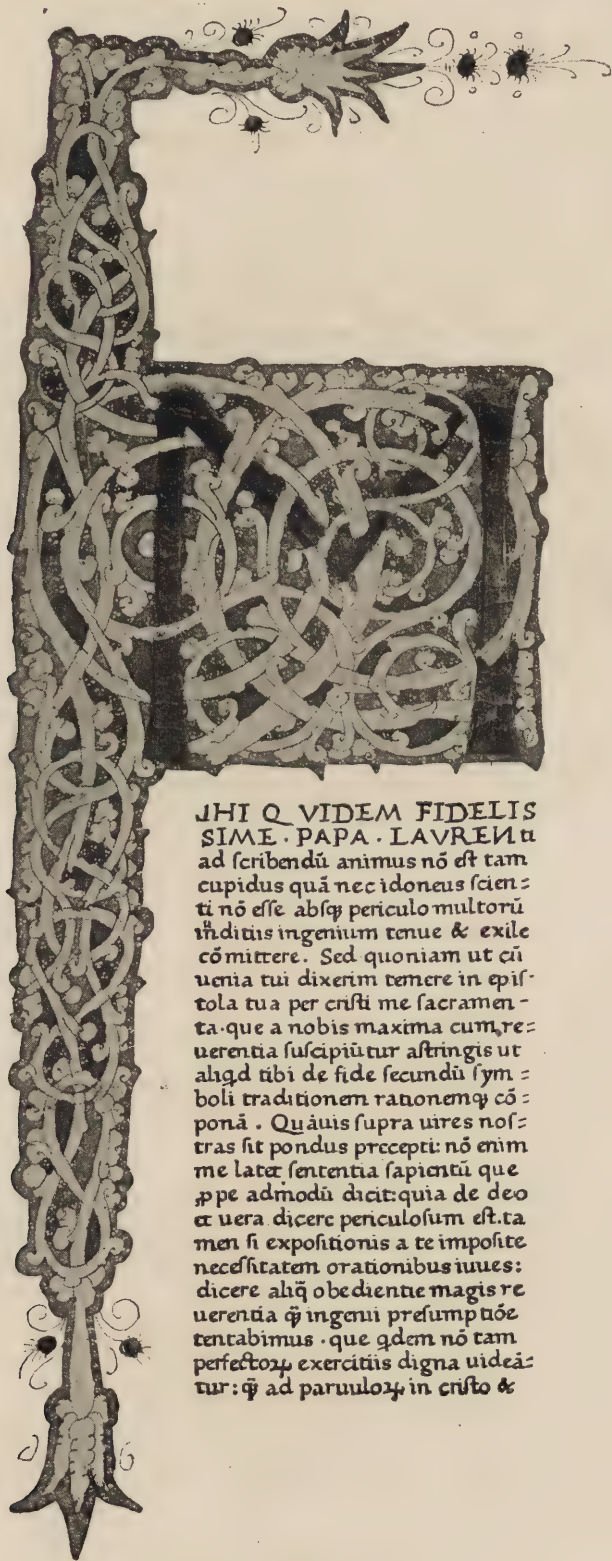 M
JHI Q VIDEM FIDELIS
SIME · PAPA · LAVRENti
ad ſcribendū animus nō eſt tam
cupidus quā nec idoneus ſcien=
ti nō eſſe abſqꝫ periculo multorū
iuditiis ingenium tenue & exile
cōmittere. Sed quoniam ut cū
uenia tui dixerim temere in epiſ-
tola tua per criſti me ſacramen-
ta·que a nobis maxima cum re=
uerentia ſuſcipiūtur aſtringis ut
aliqd tibi de fide ſecundū ſym=
boli traditionem rationemqꝫ cō=
ponā . Quāuis ſupra uires noſ=
tras ſit pondus precepti: nō enim
me latet ſententia ſapientū que
ꝓpe admodū dicit:quia de deo
et uera dicere periculoſum eſt.ta
men ſi expoſitionis a te impoſite
neceſſitatem orationibus iuues:
dicere aliq̄ obedientie magis re
uerentia q̄ꝫ ingenii preſumptiōe
tentabimus · que qdem nō tam
perfectoꝝ exercitiis digna uideā=
tur: q̄ꝫ ad paruuloꝝ in criſto &